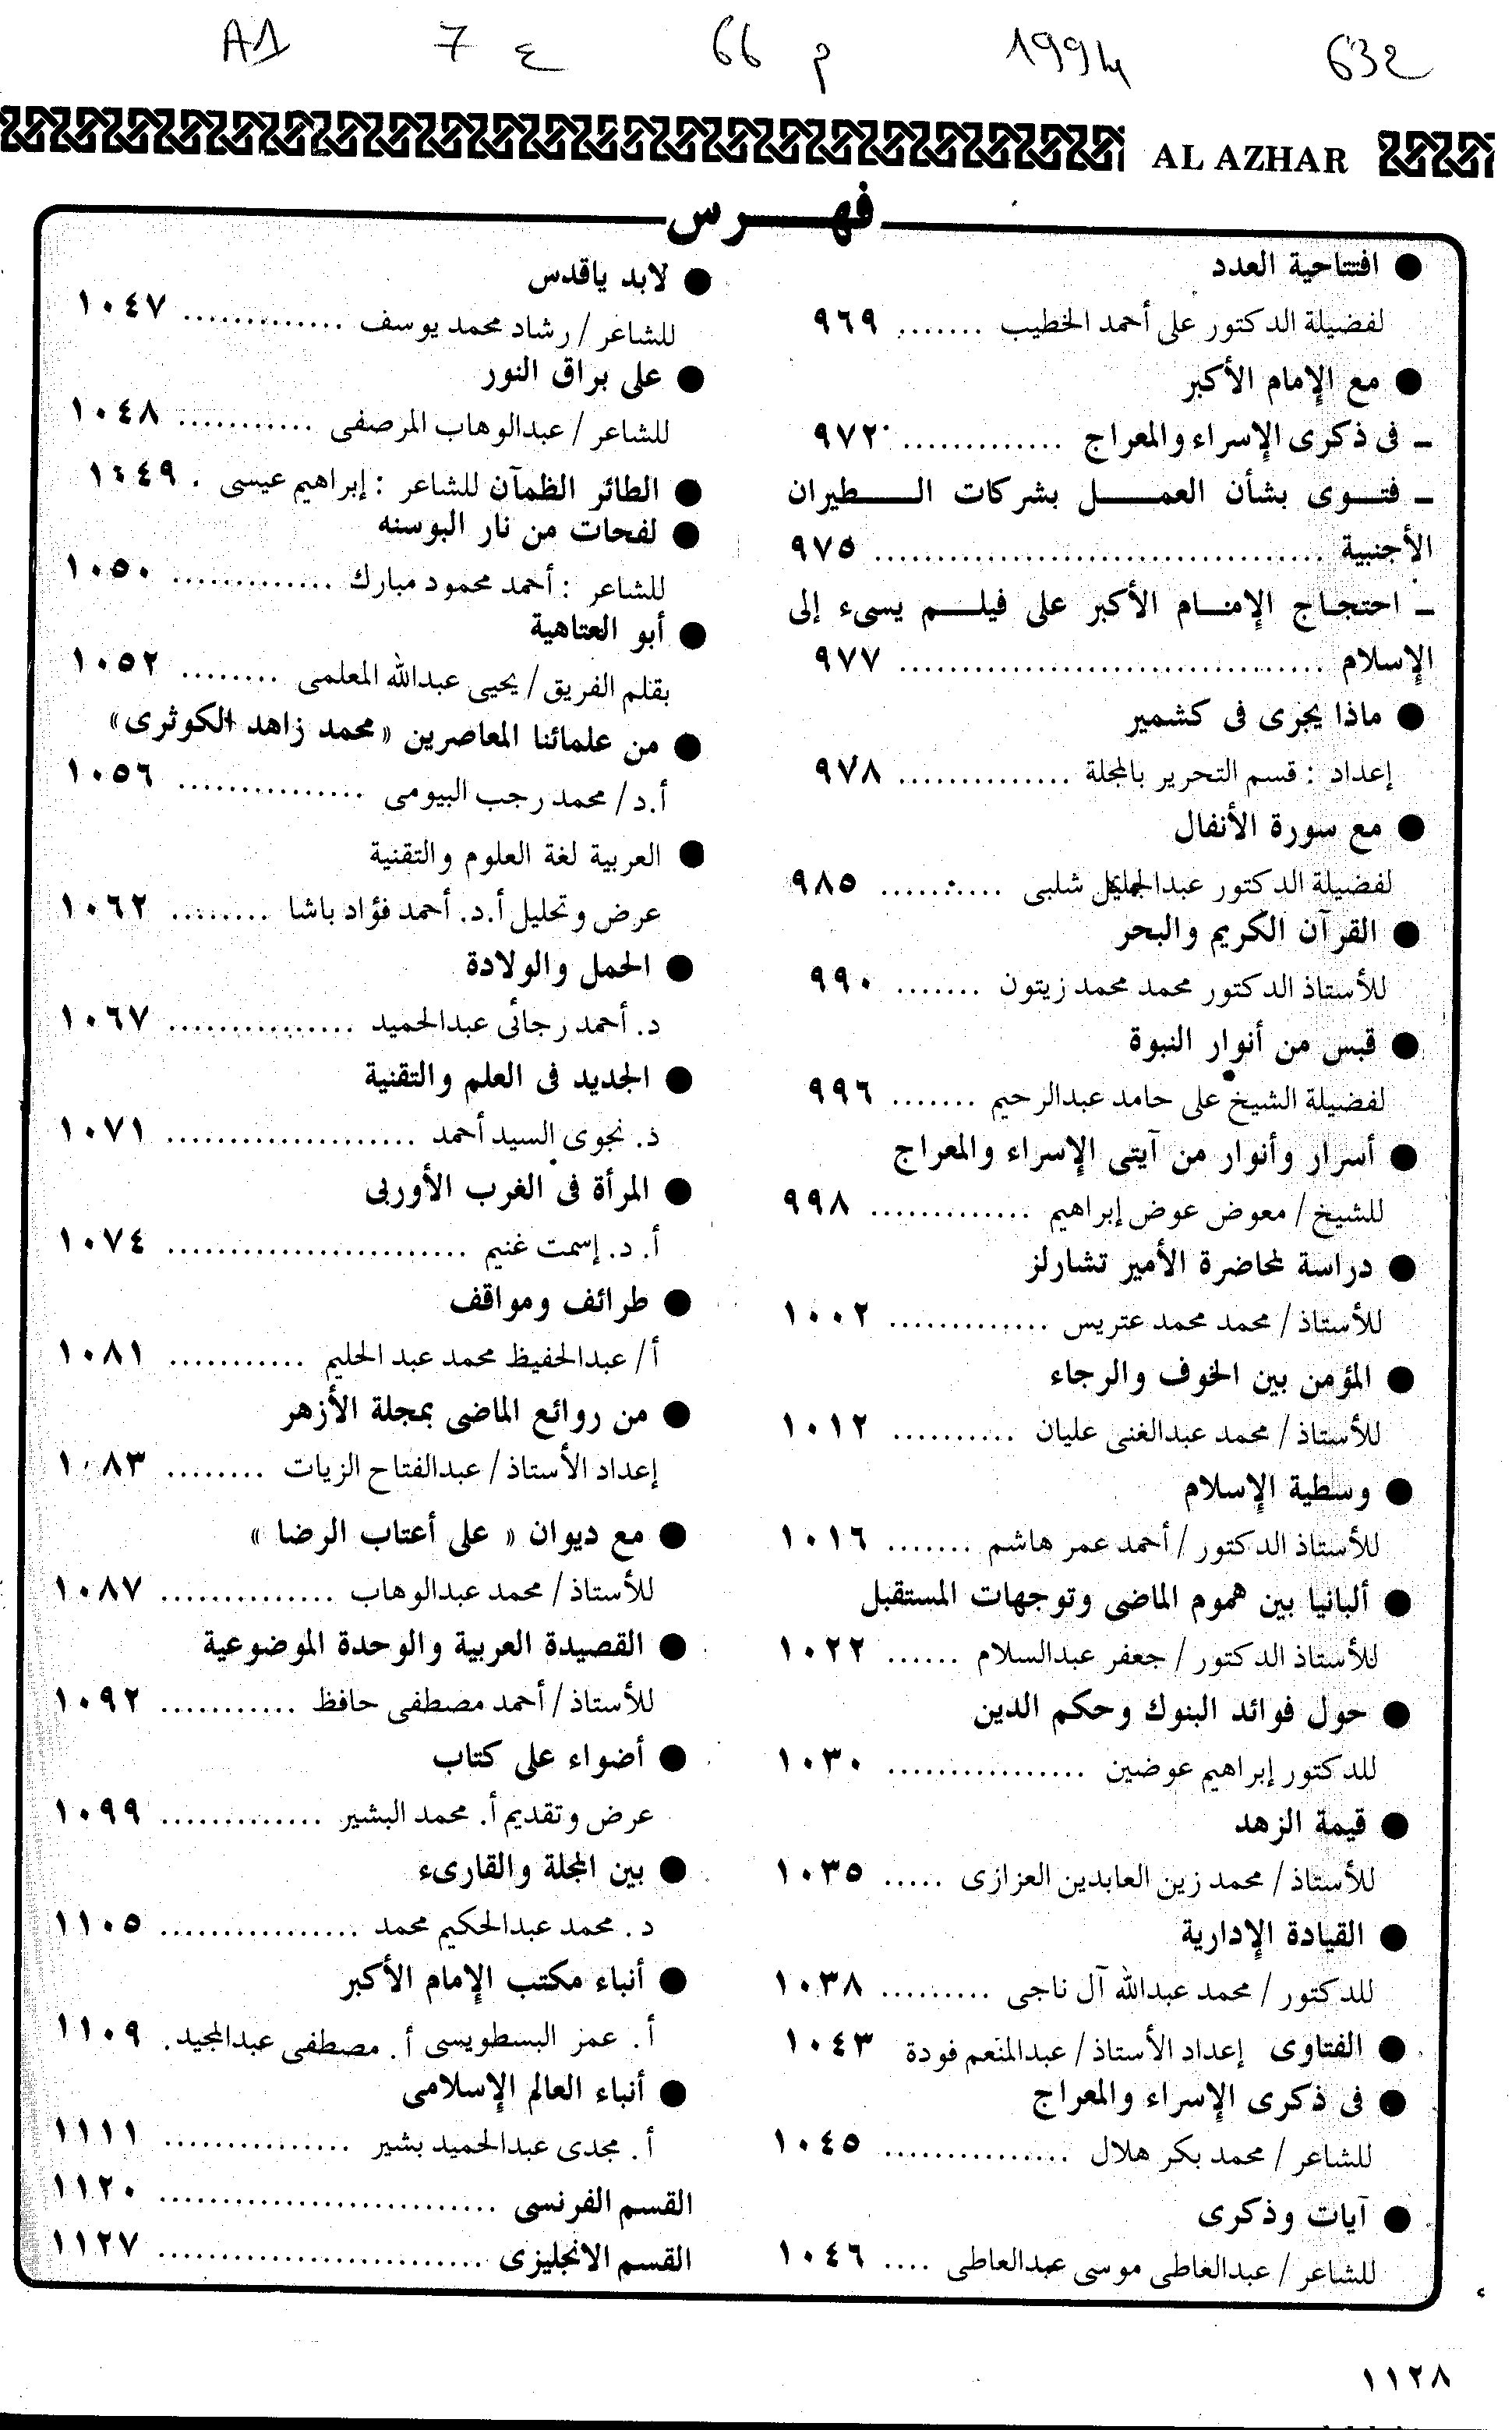 A1 7 ع 66 م 1994 632
AL AZHAR
فهرس
● افتتاحية العدد
لفضيلة الدكتور على أحمد الخطيب ....... ٩٦٩
● مع الإمام الأكبر
ـ فى ذكرى الإسراء والمعراج ............. ٩٧٢
ـ فتوى بشأن العمل بشركات الطيران
الأجنبية .................................... ٩٧٥
ـ احتجاج الإمام الأكبر على فيلم يسىء إلى
الإسلام .................................. ٩٧٧
● ماذا يجرى فى كشمير
إعداد : قسم التحرير بالمجلة .............. ٩٧٨
● مع سورة الأنفال
لفضيلة الدكتور عبدالجليل شلبى .......... ٩٨٥
● القرآن الكريم والبحر
للأستاذ الدكتور محمد محمد زيتون ....... ٩٩٠
● قبس من أنوار النبوة
لفضيلة الشيخ على حامد عبدالرحيم ....... ٩٩٦
● أسرار وأنوار من آيتى الإسراء والمعراج
للشيخ / معوض عوض إبراهيم ............. ٩٩٨
● دراسة لمحاضرة الأمير تشارلز
للأستاذ / محمد محمد عتريس ............. ١٠٠٢
● المؤمن بين الخوف والرجاء
للأستاذ / محمد عبدالغنى عليان .......... ١٠١٢
● وسطية الإسلام
للأستاذ الدكتور / أحمد عمر هاشم ....... ١٠١٦
● ألبانيا بين هموم الماضى وتوجهات المستقبل
للأستاذ الدكتور / جعفر عبدالسلام ...... ١٠٢٢
● حول فوائد البنوك وحكم الدين
للدكتور إبراهيم عوضين ................ ١٠٣٠
● قيمة الزهد
للأستاذ / محمد زين العابدين العزازى ..... ١٠٣٥
● القيادة الإدارية
للدكتور / محمد عبدالله آل ناجى ......... ١٠٣٨
● الفتاوى إعداد الأستاذ / عبدالمنعم فودة ١٠٤٣
● فى ذكرى الإسراء والمعراج
للشاعر / محمد بكر هلال ............... ١٠٤٥
● آيات وذكرى
للشاعر / عبدالعاطى موسى عبدالعاطى .... ١٠٤٦
● لابد ياقدس
للشاعر / رشاد محمد يوسف ............. ١٠٤٧
● على براق النور
للشاعر / عبدالوهاب المرصفى ........... ١٠٤٨
● الطائر الظمآن للشاعر : إبراهيم عيسى . ١٠٤٩
● لفحات من نار البوسنه
للشاعر : أحمد محمود مبارك ............. ١٠٥٠
● أبو العتاهية
بقلم الفريق / يحيى عبدالله المعلمى ........ ١٠٥٢
● من علمائنا المعاصرين «محمد زاهد الكوثرى»
أ.د/ محمد رجب البيومى ............... ١٠٥٦
● العربية لغة العلوم والتقنية
عرض وتحليل أ.د. أحمد فؤاد باشا ........ ١٠٦٢
● الحمل والولادة
د. أحمد رجائى عبدالحميد ............... ١٠٦٧
● الجديد فى العلم والتقنية
د. نجوى السيد أحمد .................... ١٠٧١
● المرأة فى الغرب الأوربى
أ. د. إسمت غنيم ........................ ١٠٧٤
● طرائف ومواقف
أ/ عبدالحفيظ محمد عبد الحليم ........... ١٠٨١
● من روائع الماضى بمجلة الأزهر
إعداد الأستاذ / عبدالفتاح الزيات ........ ١٠٨٣
● مع ديوان « على أعتاب الرضا »
للأستاذ / محمد عبدالوهاب .............. ١٠٨٧
● القصيدة العربية والوحدة الموضوعية
للأستاذ / أحمد مصطفى حافظ ........... ١٠٩٢
● أضواء على كتاب
عرض وتقديم أ. محمد البشير ............. ١٠٩٩
● بين المجلة والقارىء
د. محمد عبدالحكيم محمد ................ ١١٠٥
● أنباء مكتب الإمام الأكبر
أ. عمر البسطويسى أ. مصطفى عبدالمجيد. ١١٠٩
● أنباء العالم الإسلامى
أ. مجدى عبدالحميد بشير ............... ١١١١
القسم الفرنسى ........................... ١١٢٠
القسم الانجليزى .......................... ١١٢٧
١١٢٨